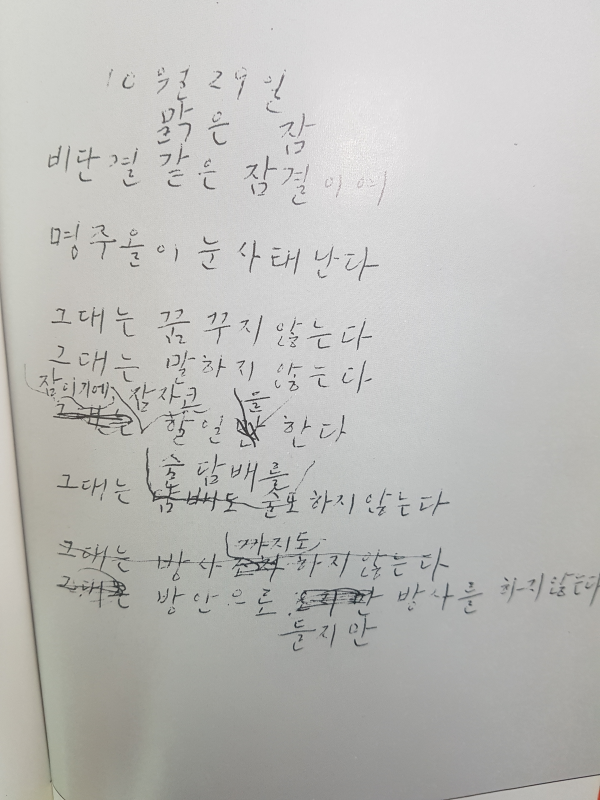 10월 29일
맑은 잠
비단결 같은 잠결이여
명주올이 눈사태 난다
그대는 꿈 꾸지 않는다
그대는 말하지 않는다
잠이기에, 잠자코 를
할 일만 한다
술 담배를
그대는 담배도 술도 하지 않는다
까지도
그대는 방사 하지 않는다
그대는 방안으로 방사를 하지 않는다
들지만